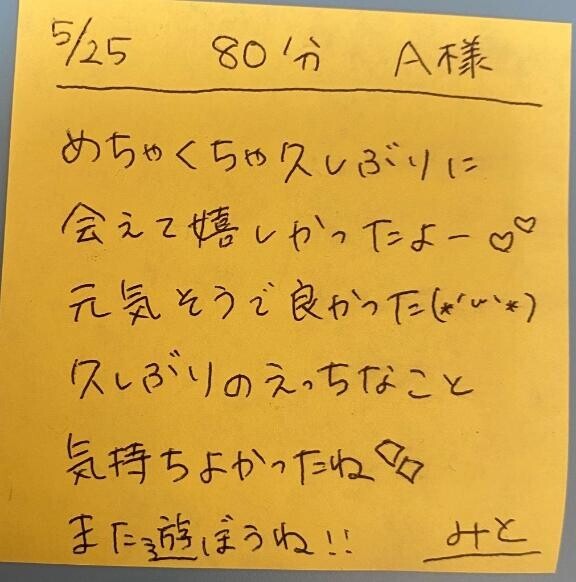 5/25 80分 A様
めちゃくちゃ久しぶりに
会えて嬉しかったよー♡♡
元気そうで良かった(*'ω'*)
久しぶりのえっちなこと
気持ちよかったね◇◇
また遊ぼうね!!
みと